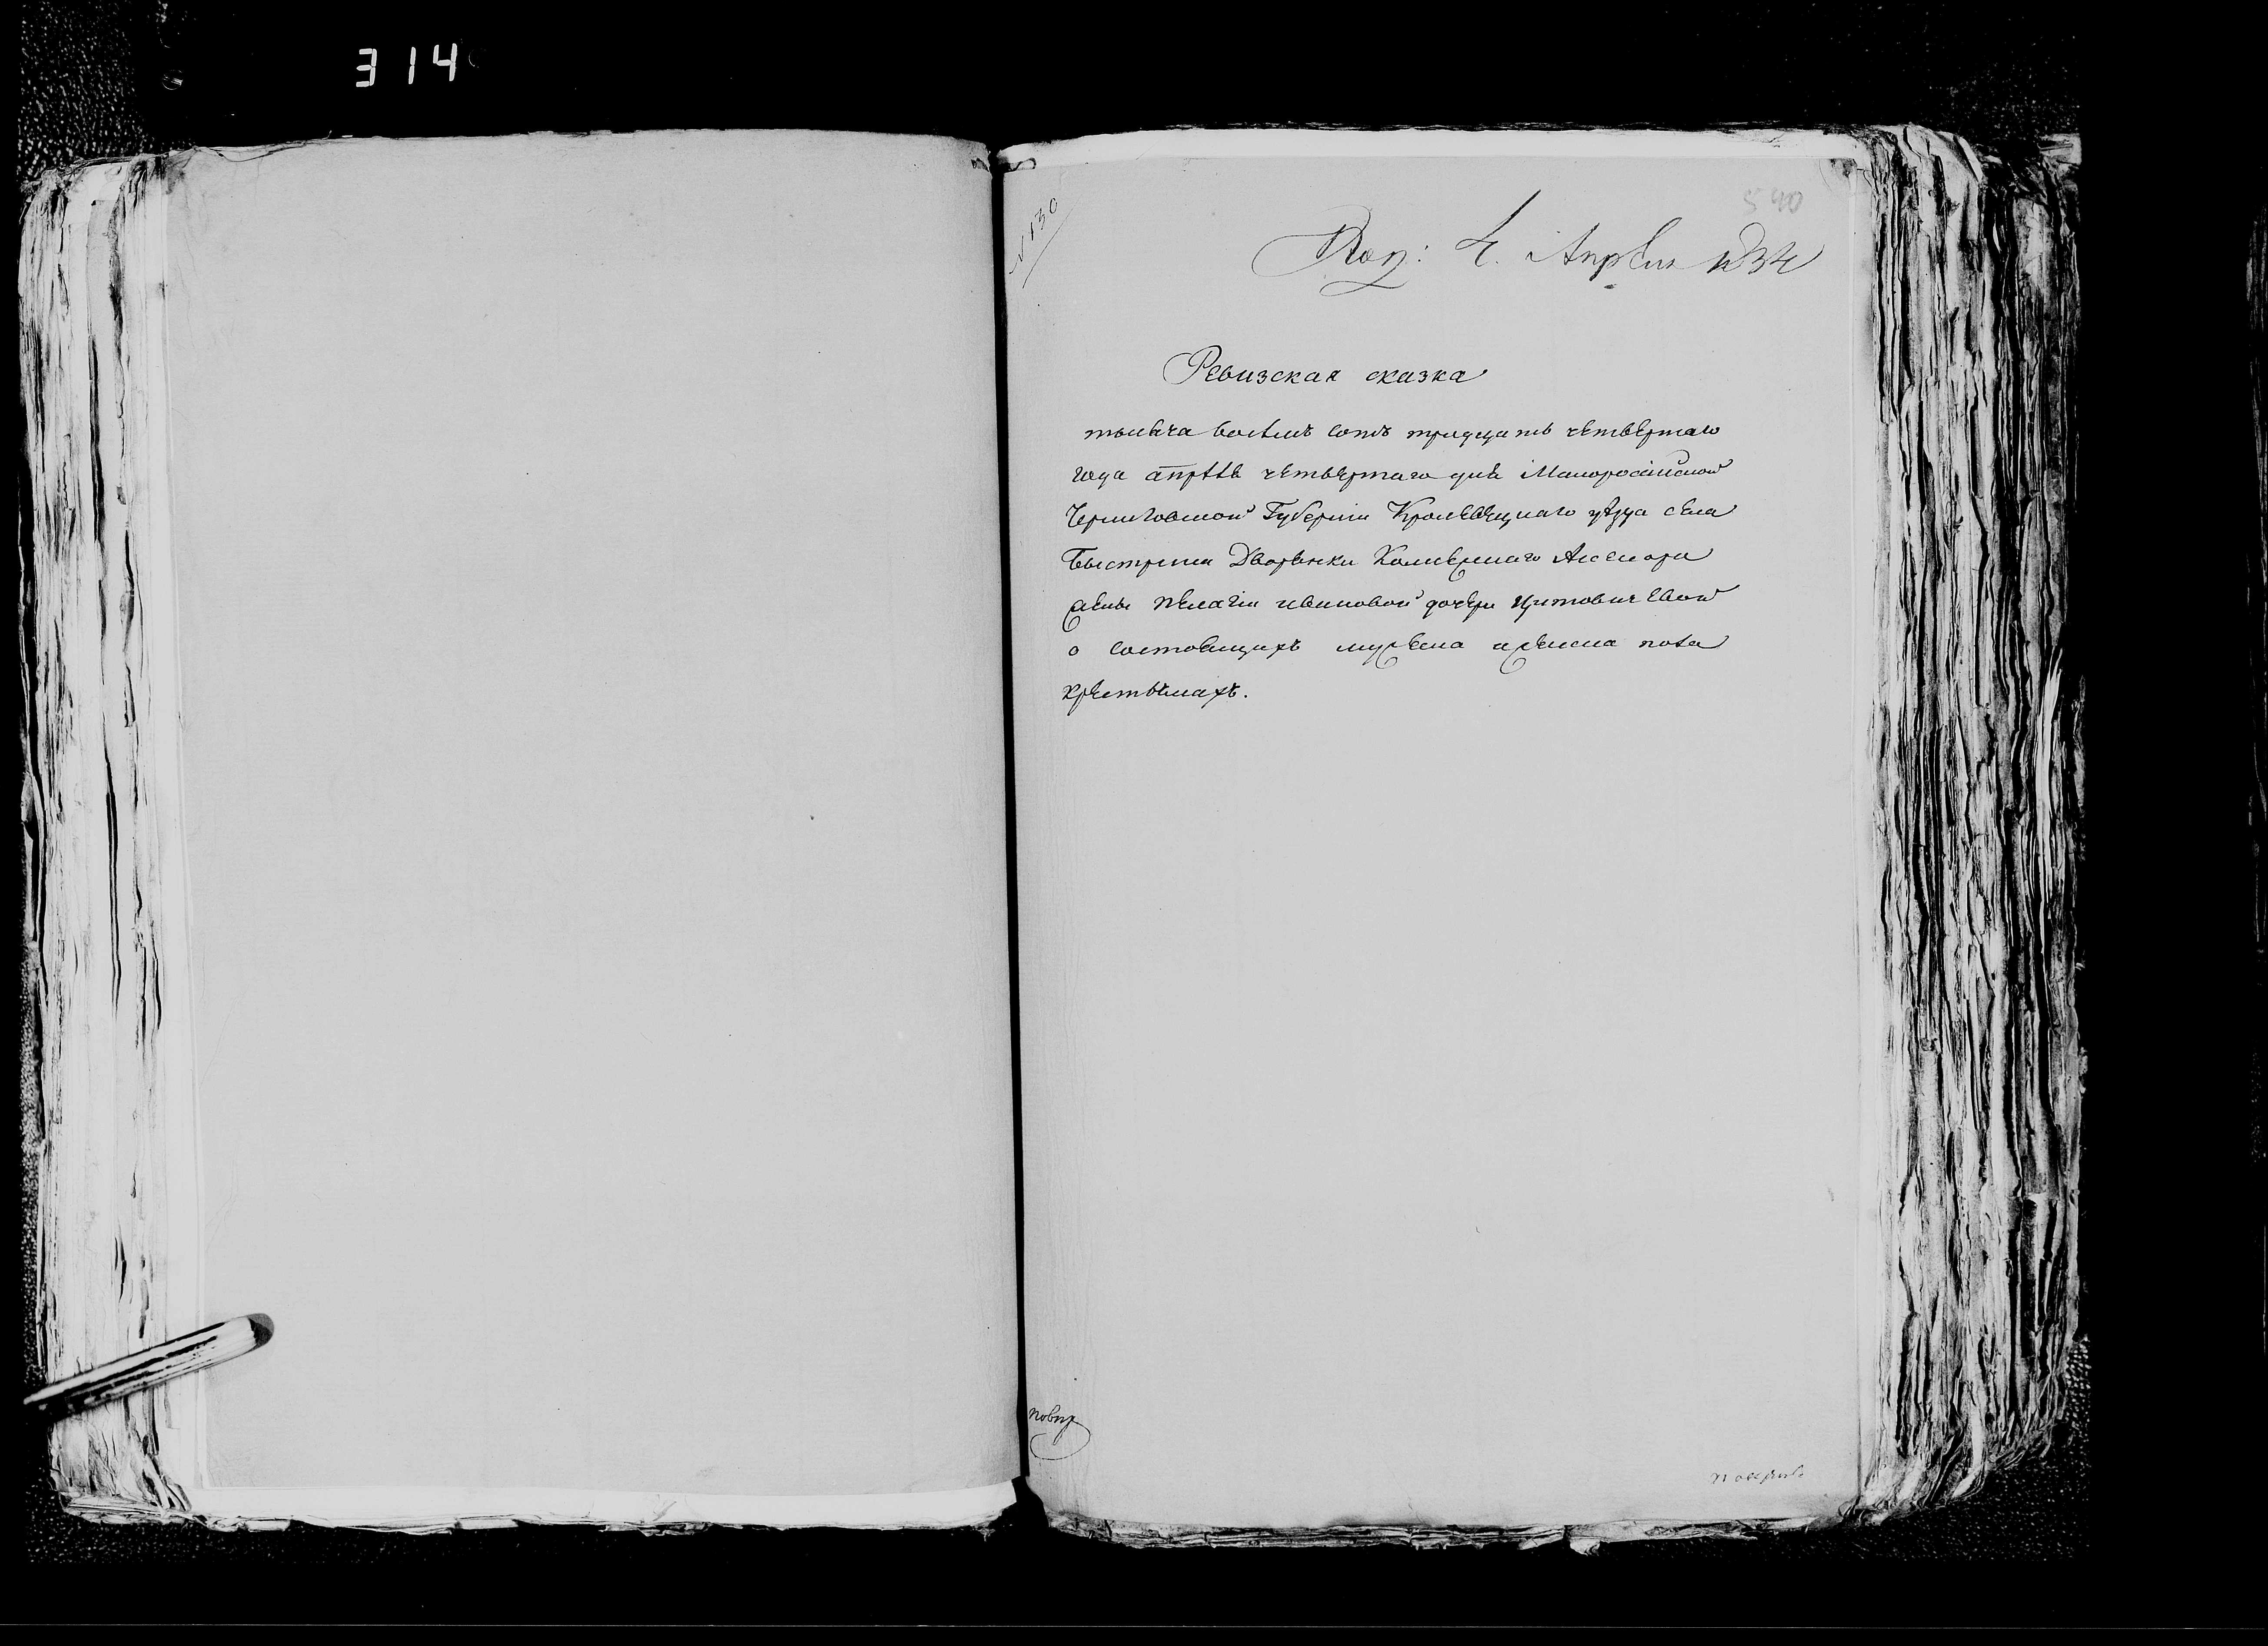 314
N 130
540
Пол: 4. Апреля 1834
Ревизская сказка
тысяча восемъ сотъ тридцать четвертаго
года апреля четвертаго дня Малоросийской
Черниговской Губернии Кролевецкаго уезда села
Быстрика Дворянки Колежскаго Асесора
жены пелагіи ивановой дочери Цитовичевой
о состоящихъ мужеска и женска пола
крестянахъ.
повер